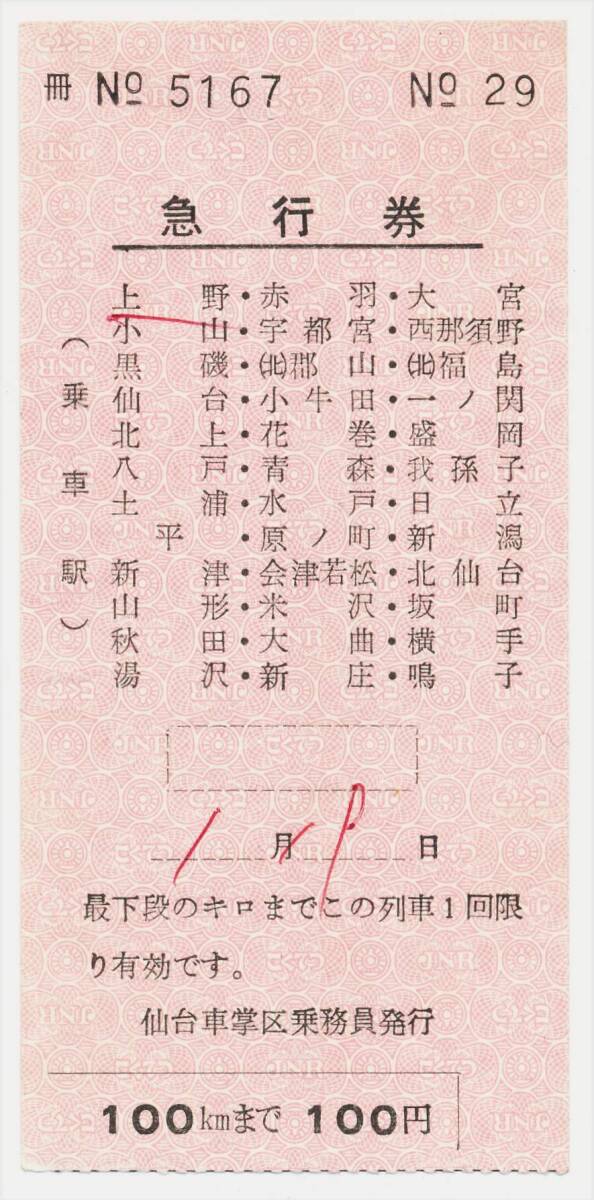 冊 Nº 5167 Nº 29
急行券
(乗車駅)
上野・赤羽・大宮
小山・宇都宮・西那須野
黒磯・㈫郡山・㈫福島
仙台・小牛田・一ノ関
北上・花巻・盛岡
八戸・青森・我孫子
土浦・水戸・日立
平・原ノ町・新潟
新津・会津若松・北仙台
山形・米沢・坂町
秋田・大曲・横手
湯沢・新庄・鳴子
1月19日
最下段のキロまでこの列車1回限
り有効です。
仙台車掌区乗務員発行
100kmまで 100円